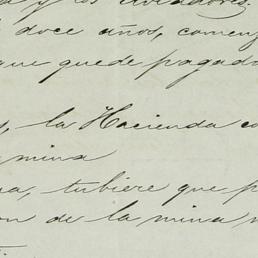 y los aviadores.
doce años, comenz
que quede pagado
s, la Hacienda co
mina
na, tubiere que p
on de la mina